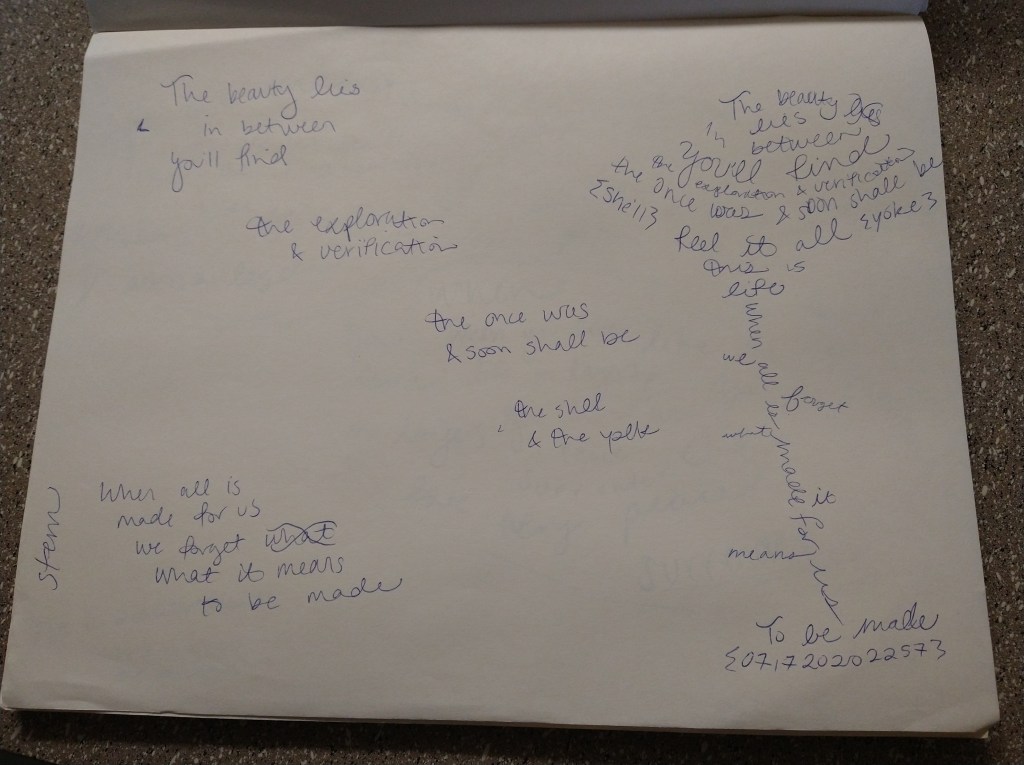 The beauty lies
in between
you'll find
the exploration
& verification
the once was
& soon shall be
the shell
& the yolk
stem
When all is
made for us
we forget what
what it means
to be made
The beauty lies
in between
You'll find
the the exploration & verification
the once was & soon shall be
{she'll}
feel it all {yoke}
this is
life
when all is made for us
we forget
what it
means
To be made
{07,172020 2257}